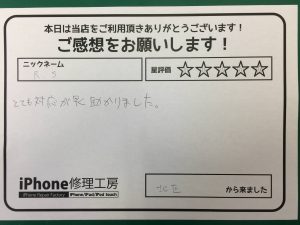 本日は当店をご利用頂きありがとうございます！
ご感想をお願いします！
ニックネーム
R S
星評価 ☆☆☆☆☆
とても対応が早く助かりました。
iPhone修理工房
iPhone Repair Factory iPhone/iPad/iPod touch
北区 から来ました